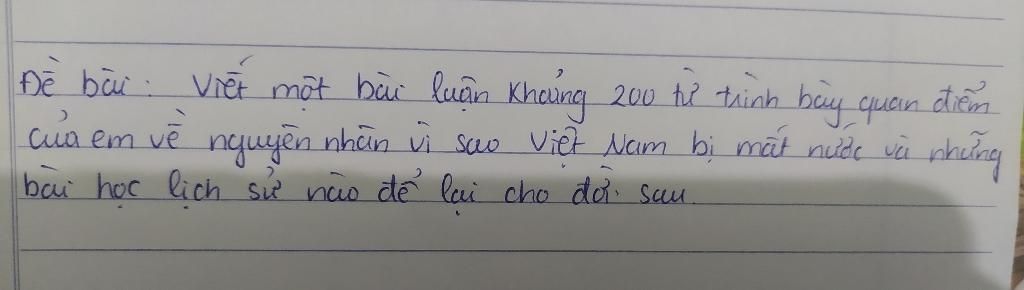 Đề bài: Viết một bài luận khoảng 200 từ trình bày quan điểm
của em về nguyên nhân vì sao Việt Nam bị mất nước và những
bài học lịch sử nào để lại cho đời sau.